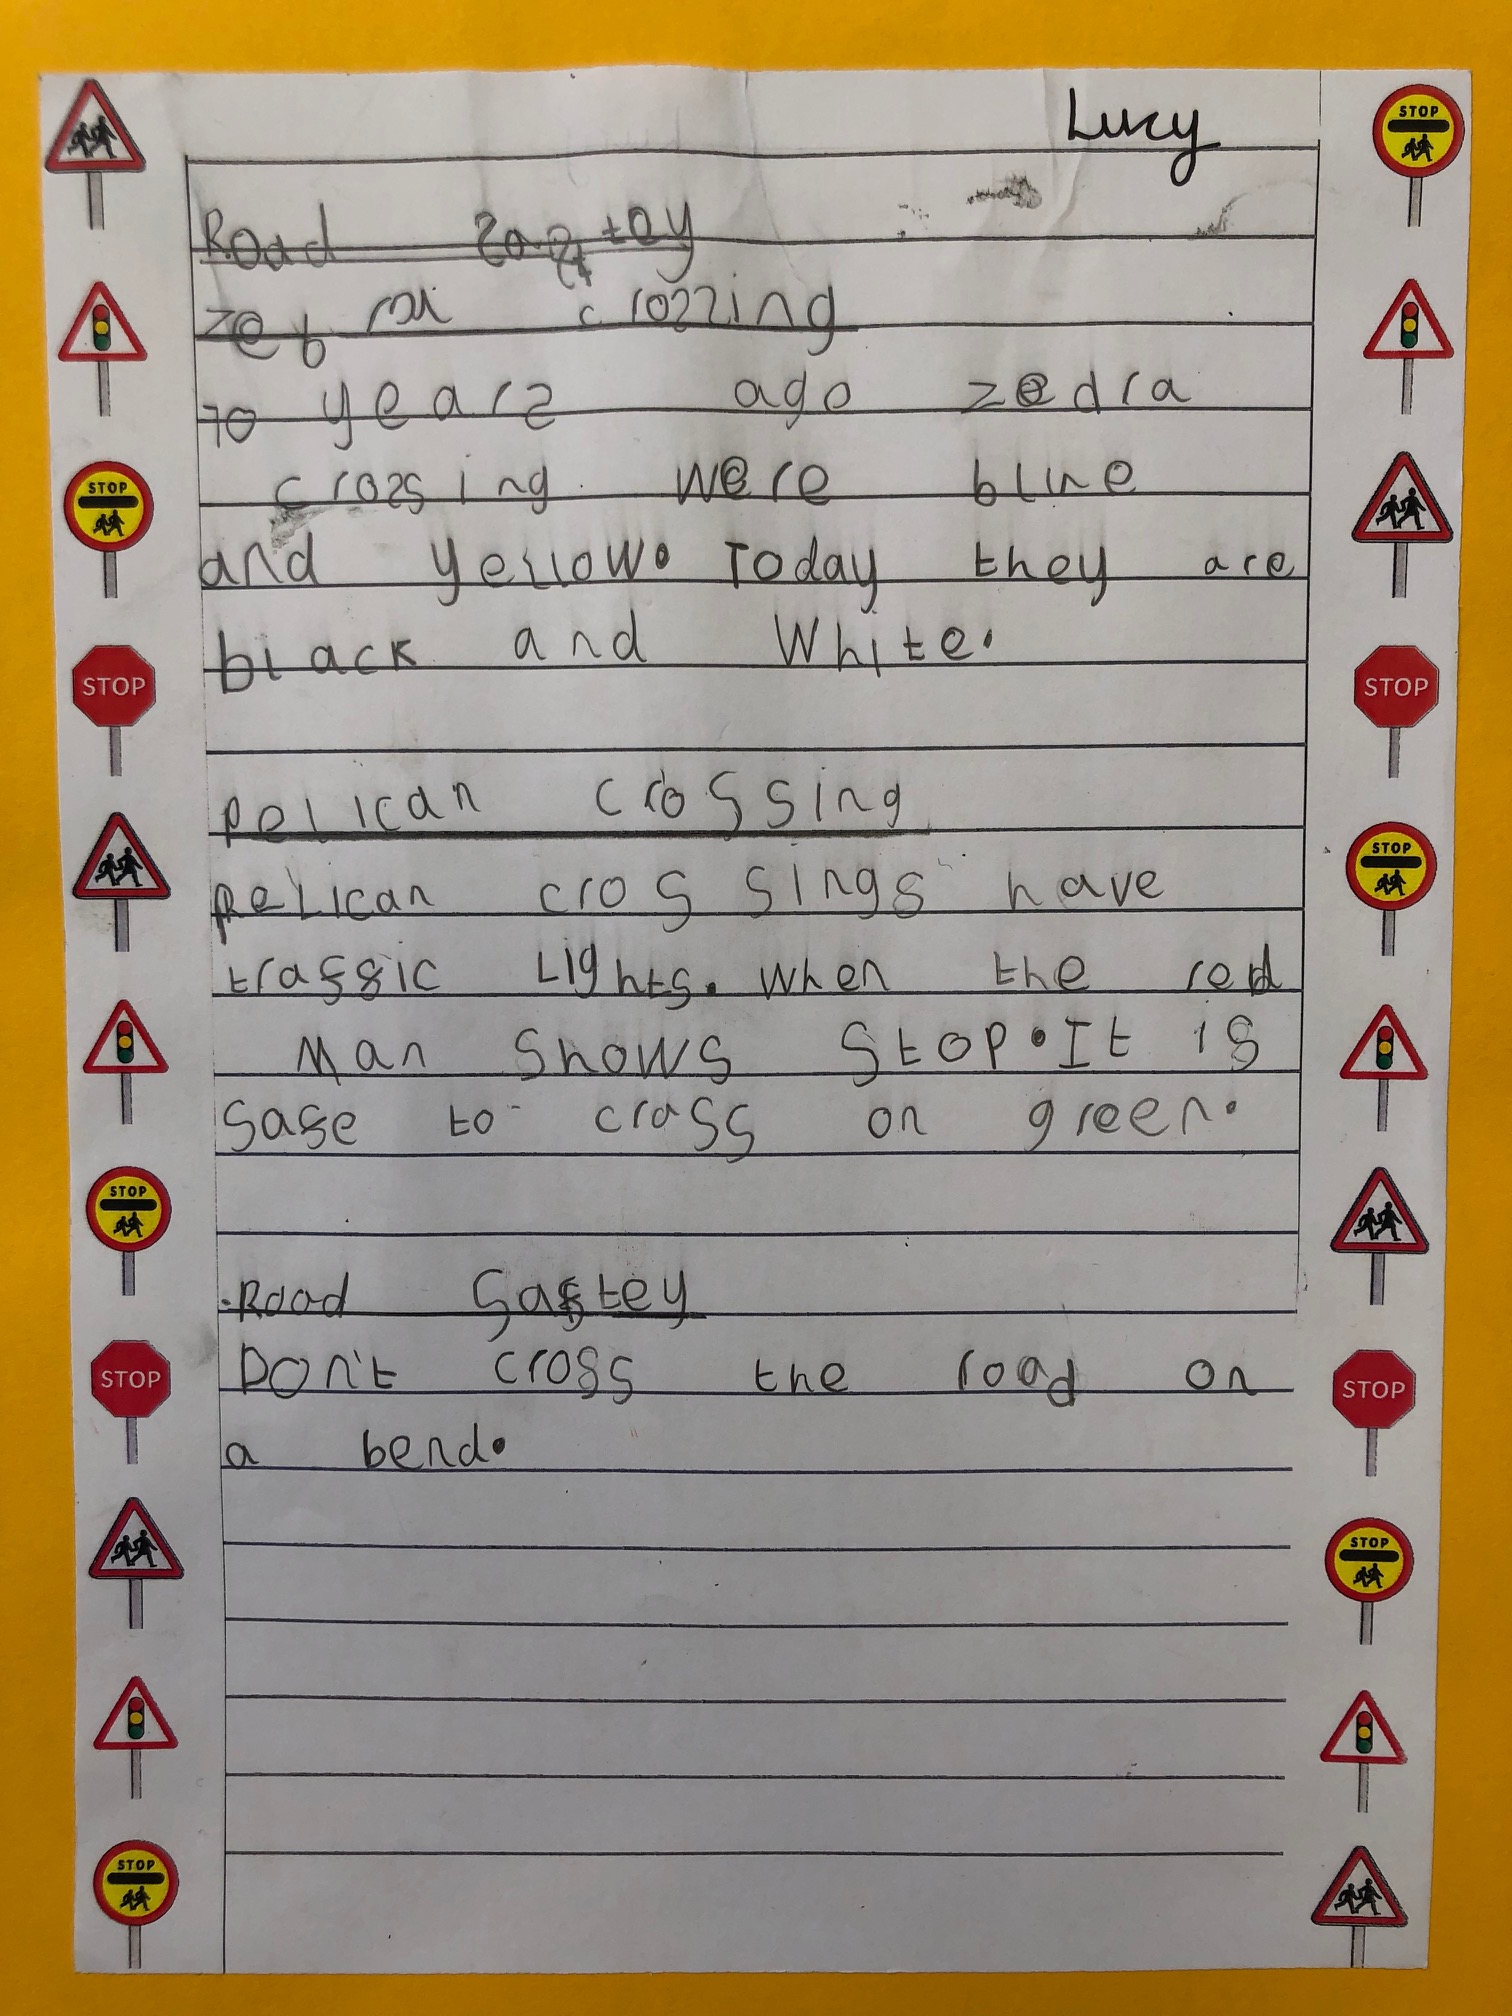 Lucy
Road
zebra crozzing
70 yearz ago zedra
crozsing were blue
and yellow. Today they are
black and White.
pelican crossing
pelican crossings have
trassic Lights. When the red
Man Shows Stop. It is
sase to cross on green.
Road Sastey
Don't cross the road on
a bend.
STOP
STOP
STOP
STOP
STOP
STOP
STOP
STOP
STOP
STOP